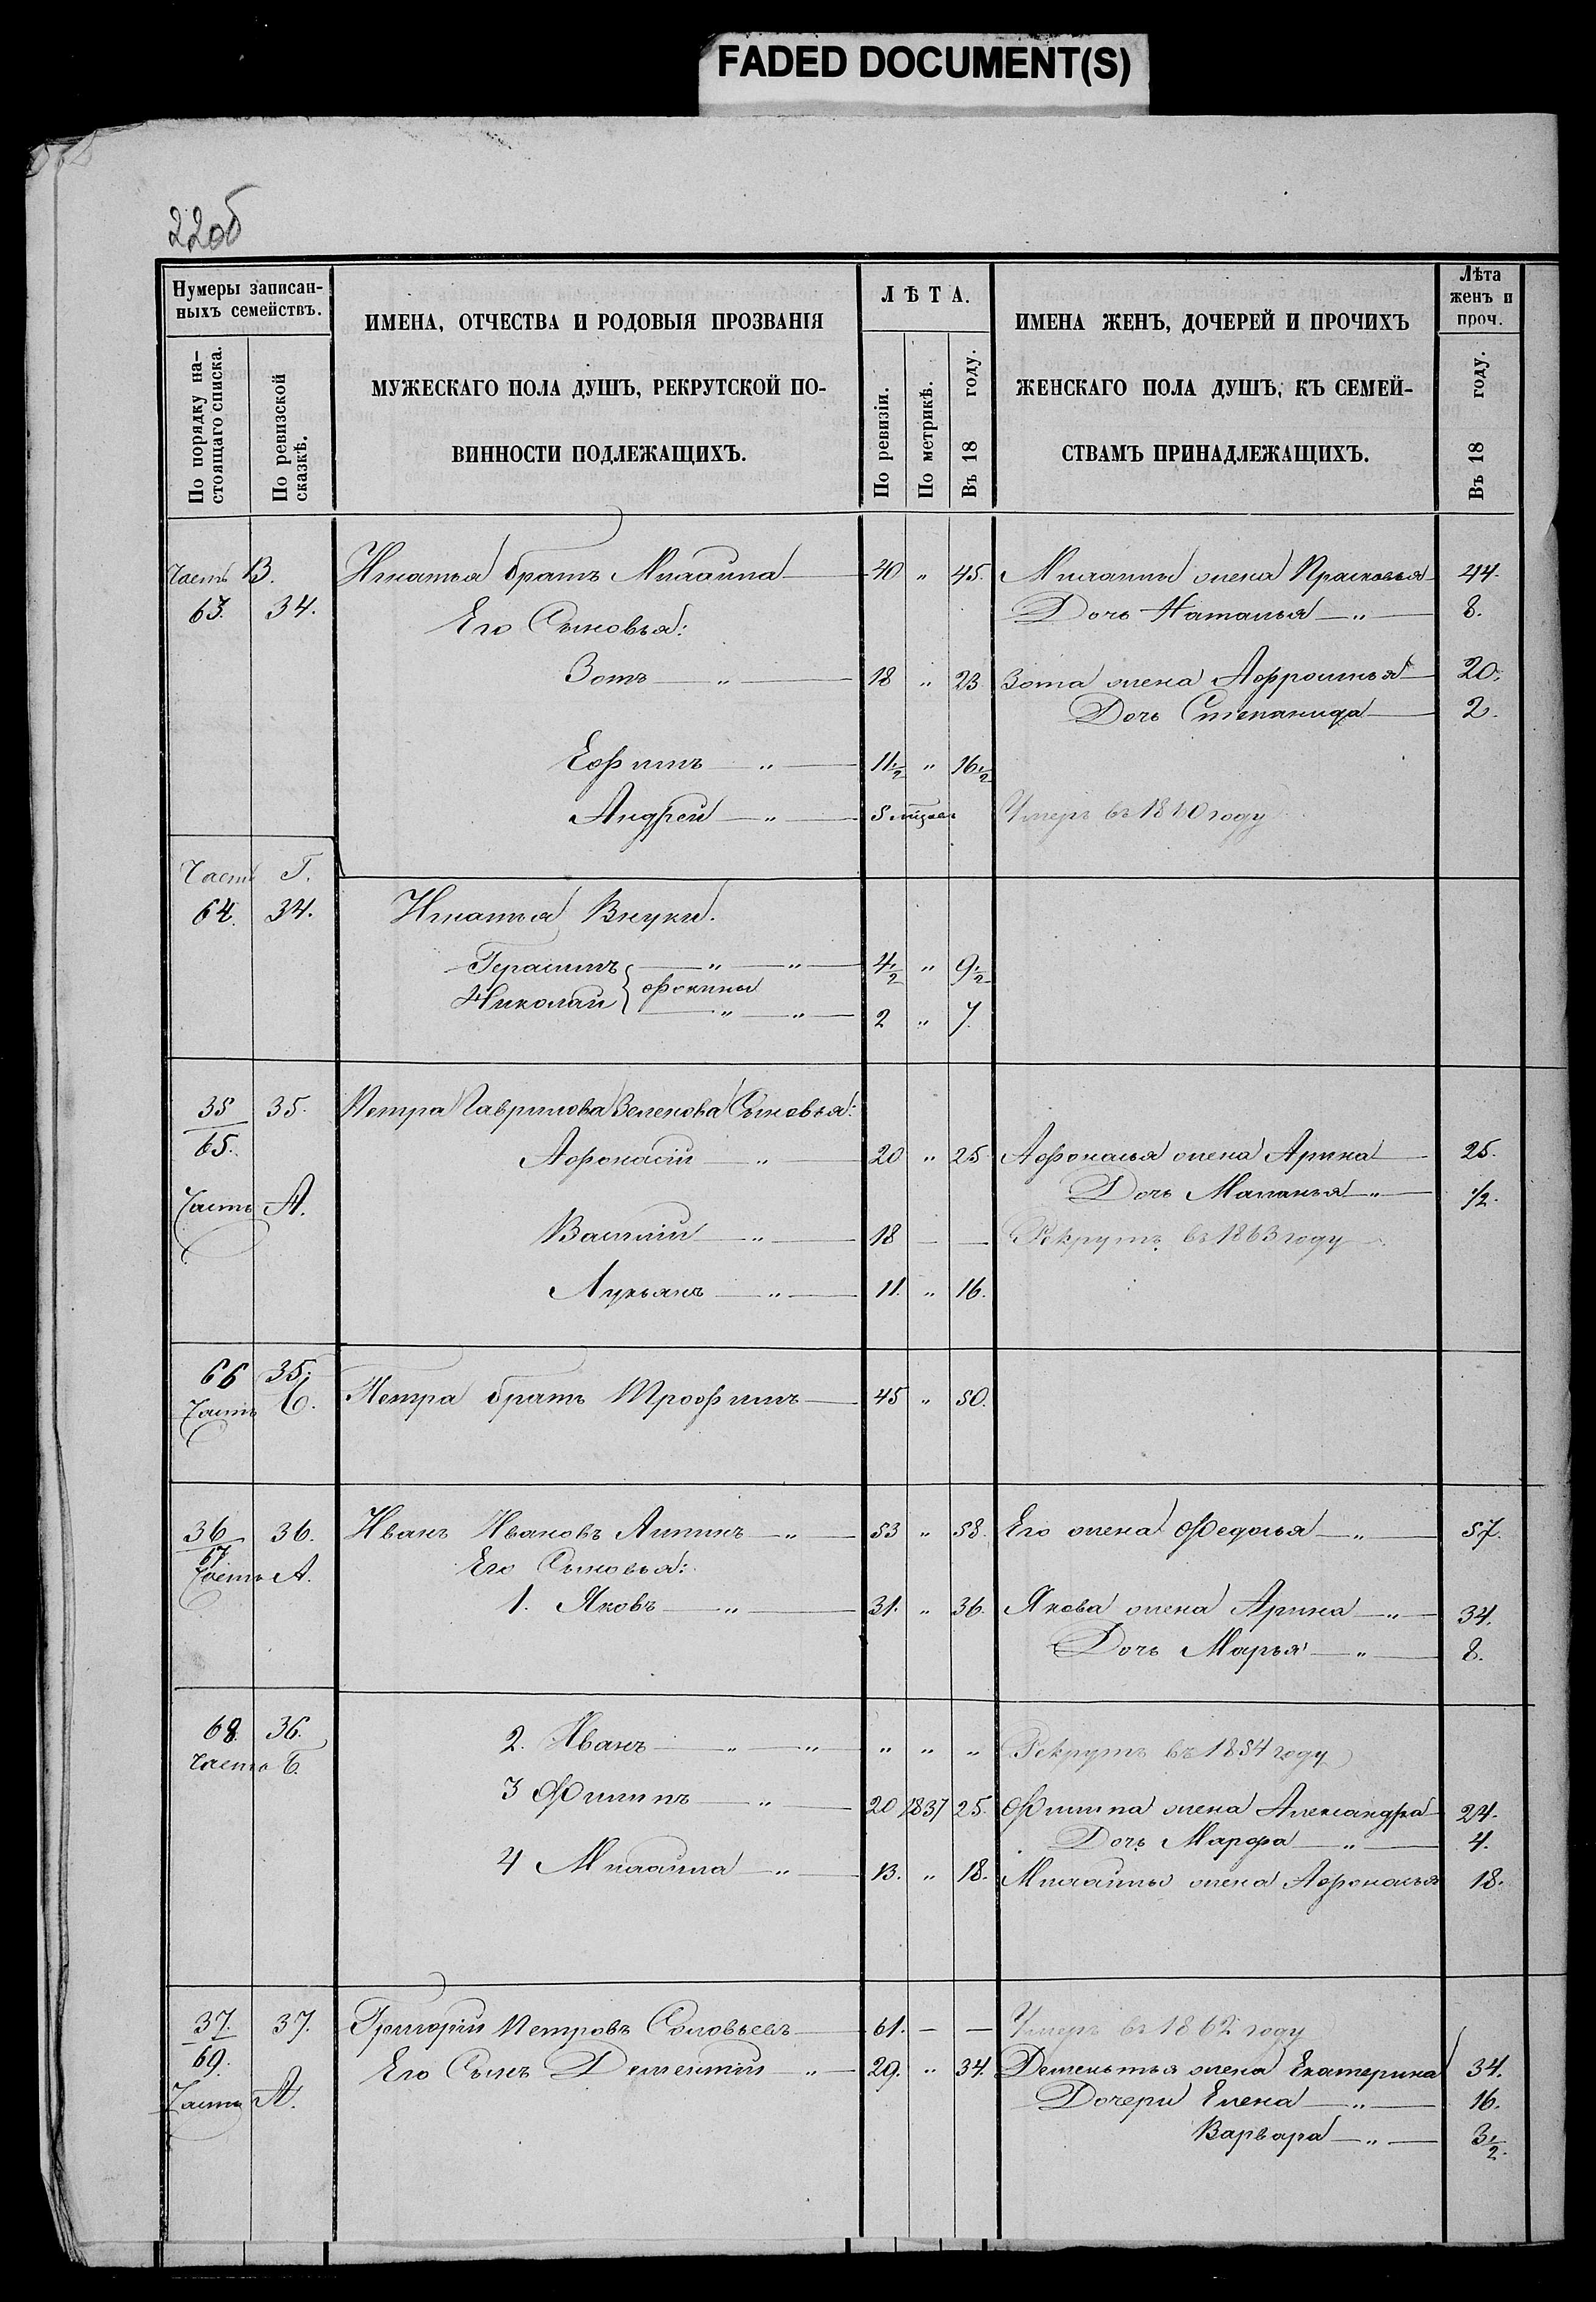 FADED DOCUMENT(S)
22об
Нумеры записан-
ныхъ семействъ.
По порядку на-
стоящаго списка.
По ревизской
сказкѣ.
ИМЕНА, ОТЧЕСТВА И РОДОВЫЯ ПРОЗВАНІЯ
МУЖЕСКАГО ПОЛА ДУШЪ, РЕКРУТСКОЙ ПО-
ВИННОСТИ ПОДЛЕЖАЩИХЪ.
ЛѢТА.
По ревизіи.
По метрикѣ.
Въ 18 году.
ИМЕНА ЖЕНЪ, ДОЧЕРЕЙ И ПРОЧИХЪ
ЖЕНСКАГО ПОЛА ДУШЪ, КЪ СЕМЕЙ-
СТВАМЪ ПРИНАДЛЕЖАЩИХЪ.
Лѣта
женъ и
проч.
Въ 18 году.
Часть В. Игнатья братъ Михаила 40 " 45. Михаилы жена Прасковья 44.
63. 34. Его Сыновья: Дочь Наталья " 8.
Зотъ " 18 " 23 Зота жена Афросинья 20.
Дочь Степанида 2.
Ефимъ " 11½ " 16½
Андрей " 5 мѣсяц. Умеръ въ 1860 году
Часть Г.
64. 34. Игнатья Внуки.
Герасимъ " " 4½ " 9½
Фокины
Николай " " 2 " 7.
35 35. Петра Гаврилова Зеленова Сыновья:
65. Афонасій " 20 " 25 Афонасья жена Арина 25.
Часть А. Дочь Маланья " ½.
Василій " 18 — — Рекрутъ въ 1863 году
Лукьянъ " 11. " 16.
66 35.
Часть Б. Петра братъ Трофимъ 45 " 50.
36 36. Иванъ Ивановъ Липинъ " 53 " 58. Его жена Федосья " 57.
67 Его Сыновья:
Часть А. 1. Яковъ " 31. " 36. Якова жена Арина " 34.
Дочь Марья " 8.
68. 36. 2. Иванъ " " " " " Рекрутъ въ 1854 году
Часть Б.
3 Филипъ " 20 1837 25. Филипа жена Александра 24.
Дочь Марфа " 4.
4 Михаила " 13. " 18. Михаилы жена Афонасья 18.
37. 37. Григорій Петровъ Соловьевъ 61. — — Умеръ въ 1862 году
69. Его Сынъ Дементій " 29. " 34. Дементья жена Екатерина 34.
Часть А. Дочери Елена " 16.
Варвара " 3½.